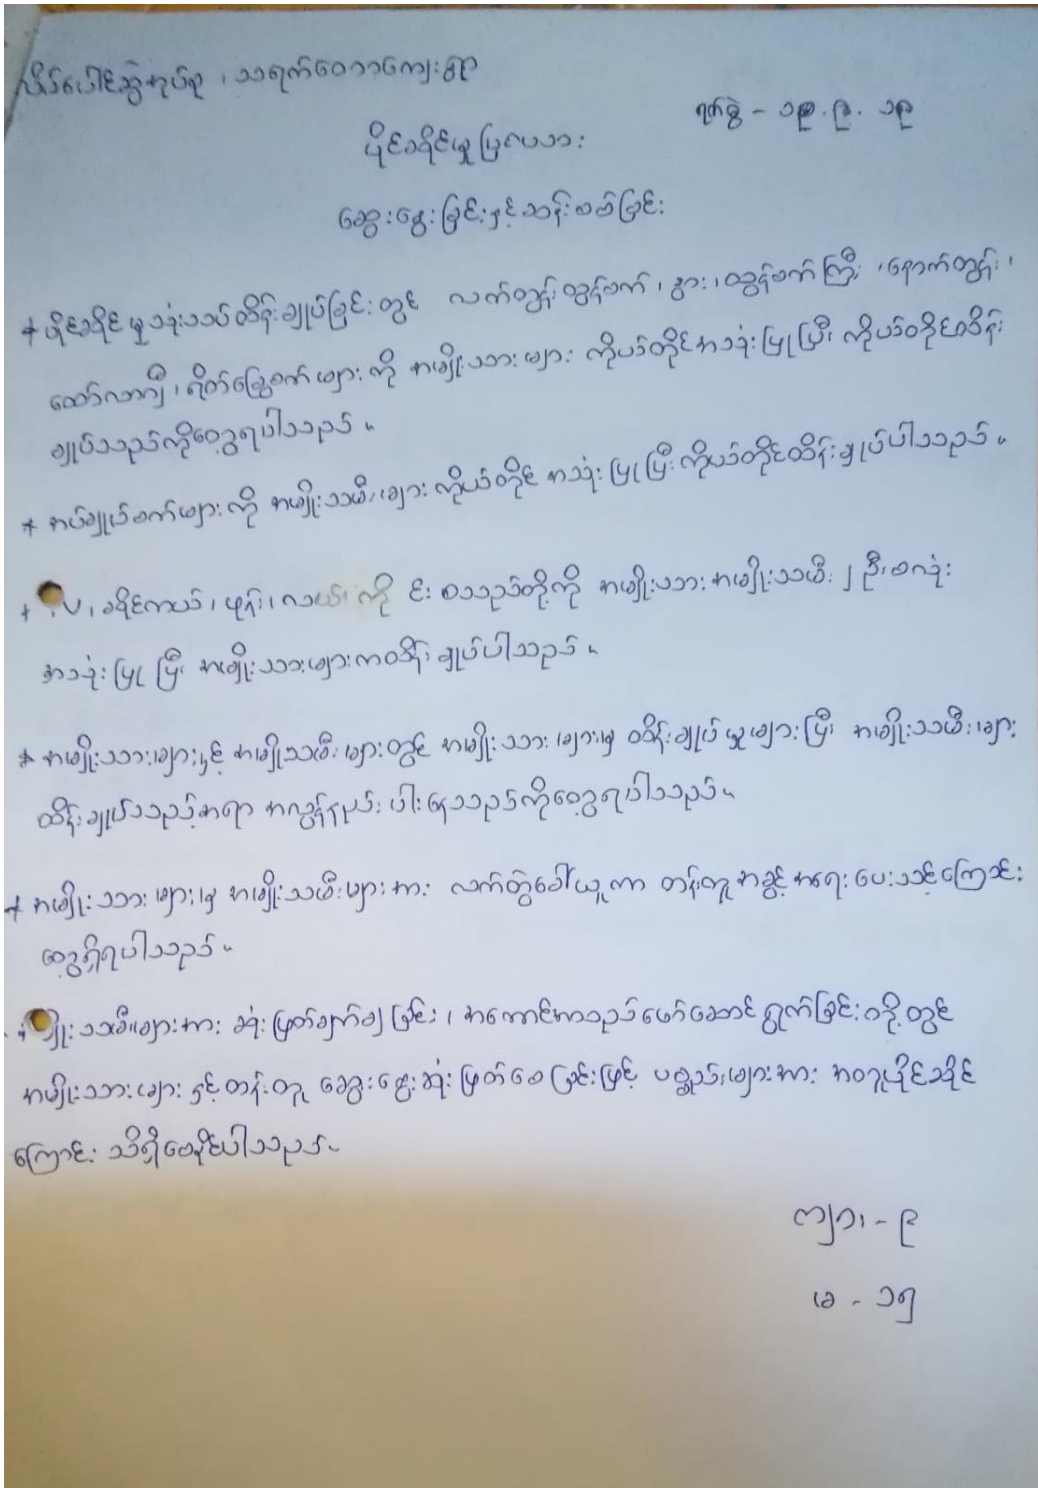 သရက်ဝေဘကျေးရွာ
ရက်စွဲ - ၁၉.၉.၁၉
ပိုင်ဆိုင်မှုပြဇယား
ဆွေးနွေးခြင်းနှင့်ဆန်းစစ်ခြင်း
* ပိုင်ဆိုင်မှုသုံးသပ်ထိန်းချုပ်ခြင်းတွင် လက်တွန်းထွန်စက်၊ နွား၊ ထွန်စက်ကြီး၊ နောက်တွန်း၊
ထော်လာဂျီ၊ ရိတ်ခြွေစက်များကို အမျိုးသားများ ကိုယ်တိုင်အသုံးပြုပြီး ကိုယ်တိုင်ထိန်း
ချုပ်သည်ကိုတွေ့ရပါသည်။
* အပ်ချုပ်စက်များကို အမျိုးသမီးများ ကိုယ်တိုင် အသုံးပြုပြီးကိုယ်တိုင်ထိန်းချုပ်ပါသည်။
ဆိုင်ကယ်၊ ဖုန်း၊ စသည်တို့ကို အမျိုးသား အမျိုးသမီး ၂ ဦးစလုံး
အသုံးပြုပြီး အမျိုးသားများကထိန်းချုပ်ပါသည်။
* အမျိုးသားများနှင့် အမျိုးသမီးများတွင် အမျိုးသားများမှ ထိန်းချုပ်မှုများပြီး အမျိုးသမီးများ
ထိန်းချုပ်သည့်အရာ အလွန်နည်းပါးနေသည်ကိုတွေ့ရပါသည်။
* အမျိုးသားများမှ အမျိုးသမီးများအား လက်တွဲခေါ်ယူကာ တန်းတူအခွင့်အရေးပေးသင့်ကြောင်း
တွေ့ရှိရပါသည်။
မျိုးသမီးများအား ဆုံးဖြတ်ချက်ချခြင်း၊ အကောင်အထည်ဖော်ဆောင်ရွက်ခြင်းတို့တွင်
အမျိုးသားများနှင့်တန်းတူ ဆွေးနွေးဆုံးဖြတ်စေခြင်းဖြင့် ပစ္စည်းများအား အတူပိုင်ဆိုင်
ကြောင်း သိရှိစေနိုင်ပါသည်။
ကျား - ၉
မ - ၁၅